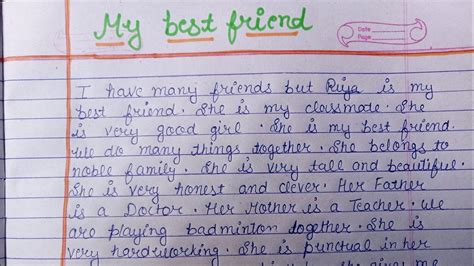 My best friend
Date
Page
I have many friends but Riya is my
best friend. She is my classmate. She
is very good girl. She is my best friend.
We do many things together. She belongs to
noble family. She is very tall and beautiful.
She is very honest and clever. Her Father
is a Doctor. Her Mother is a Teacher. We
are playing badminton together. She is
very hardworking. She is punctual in her
gives me